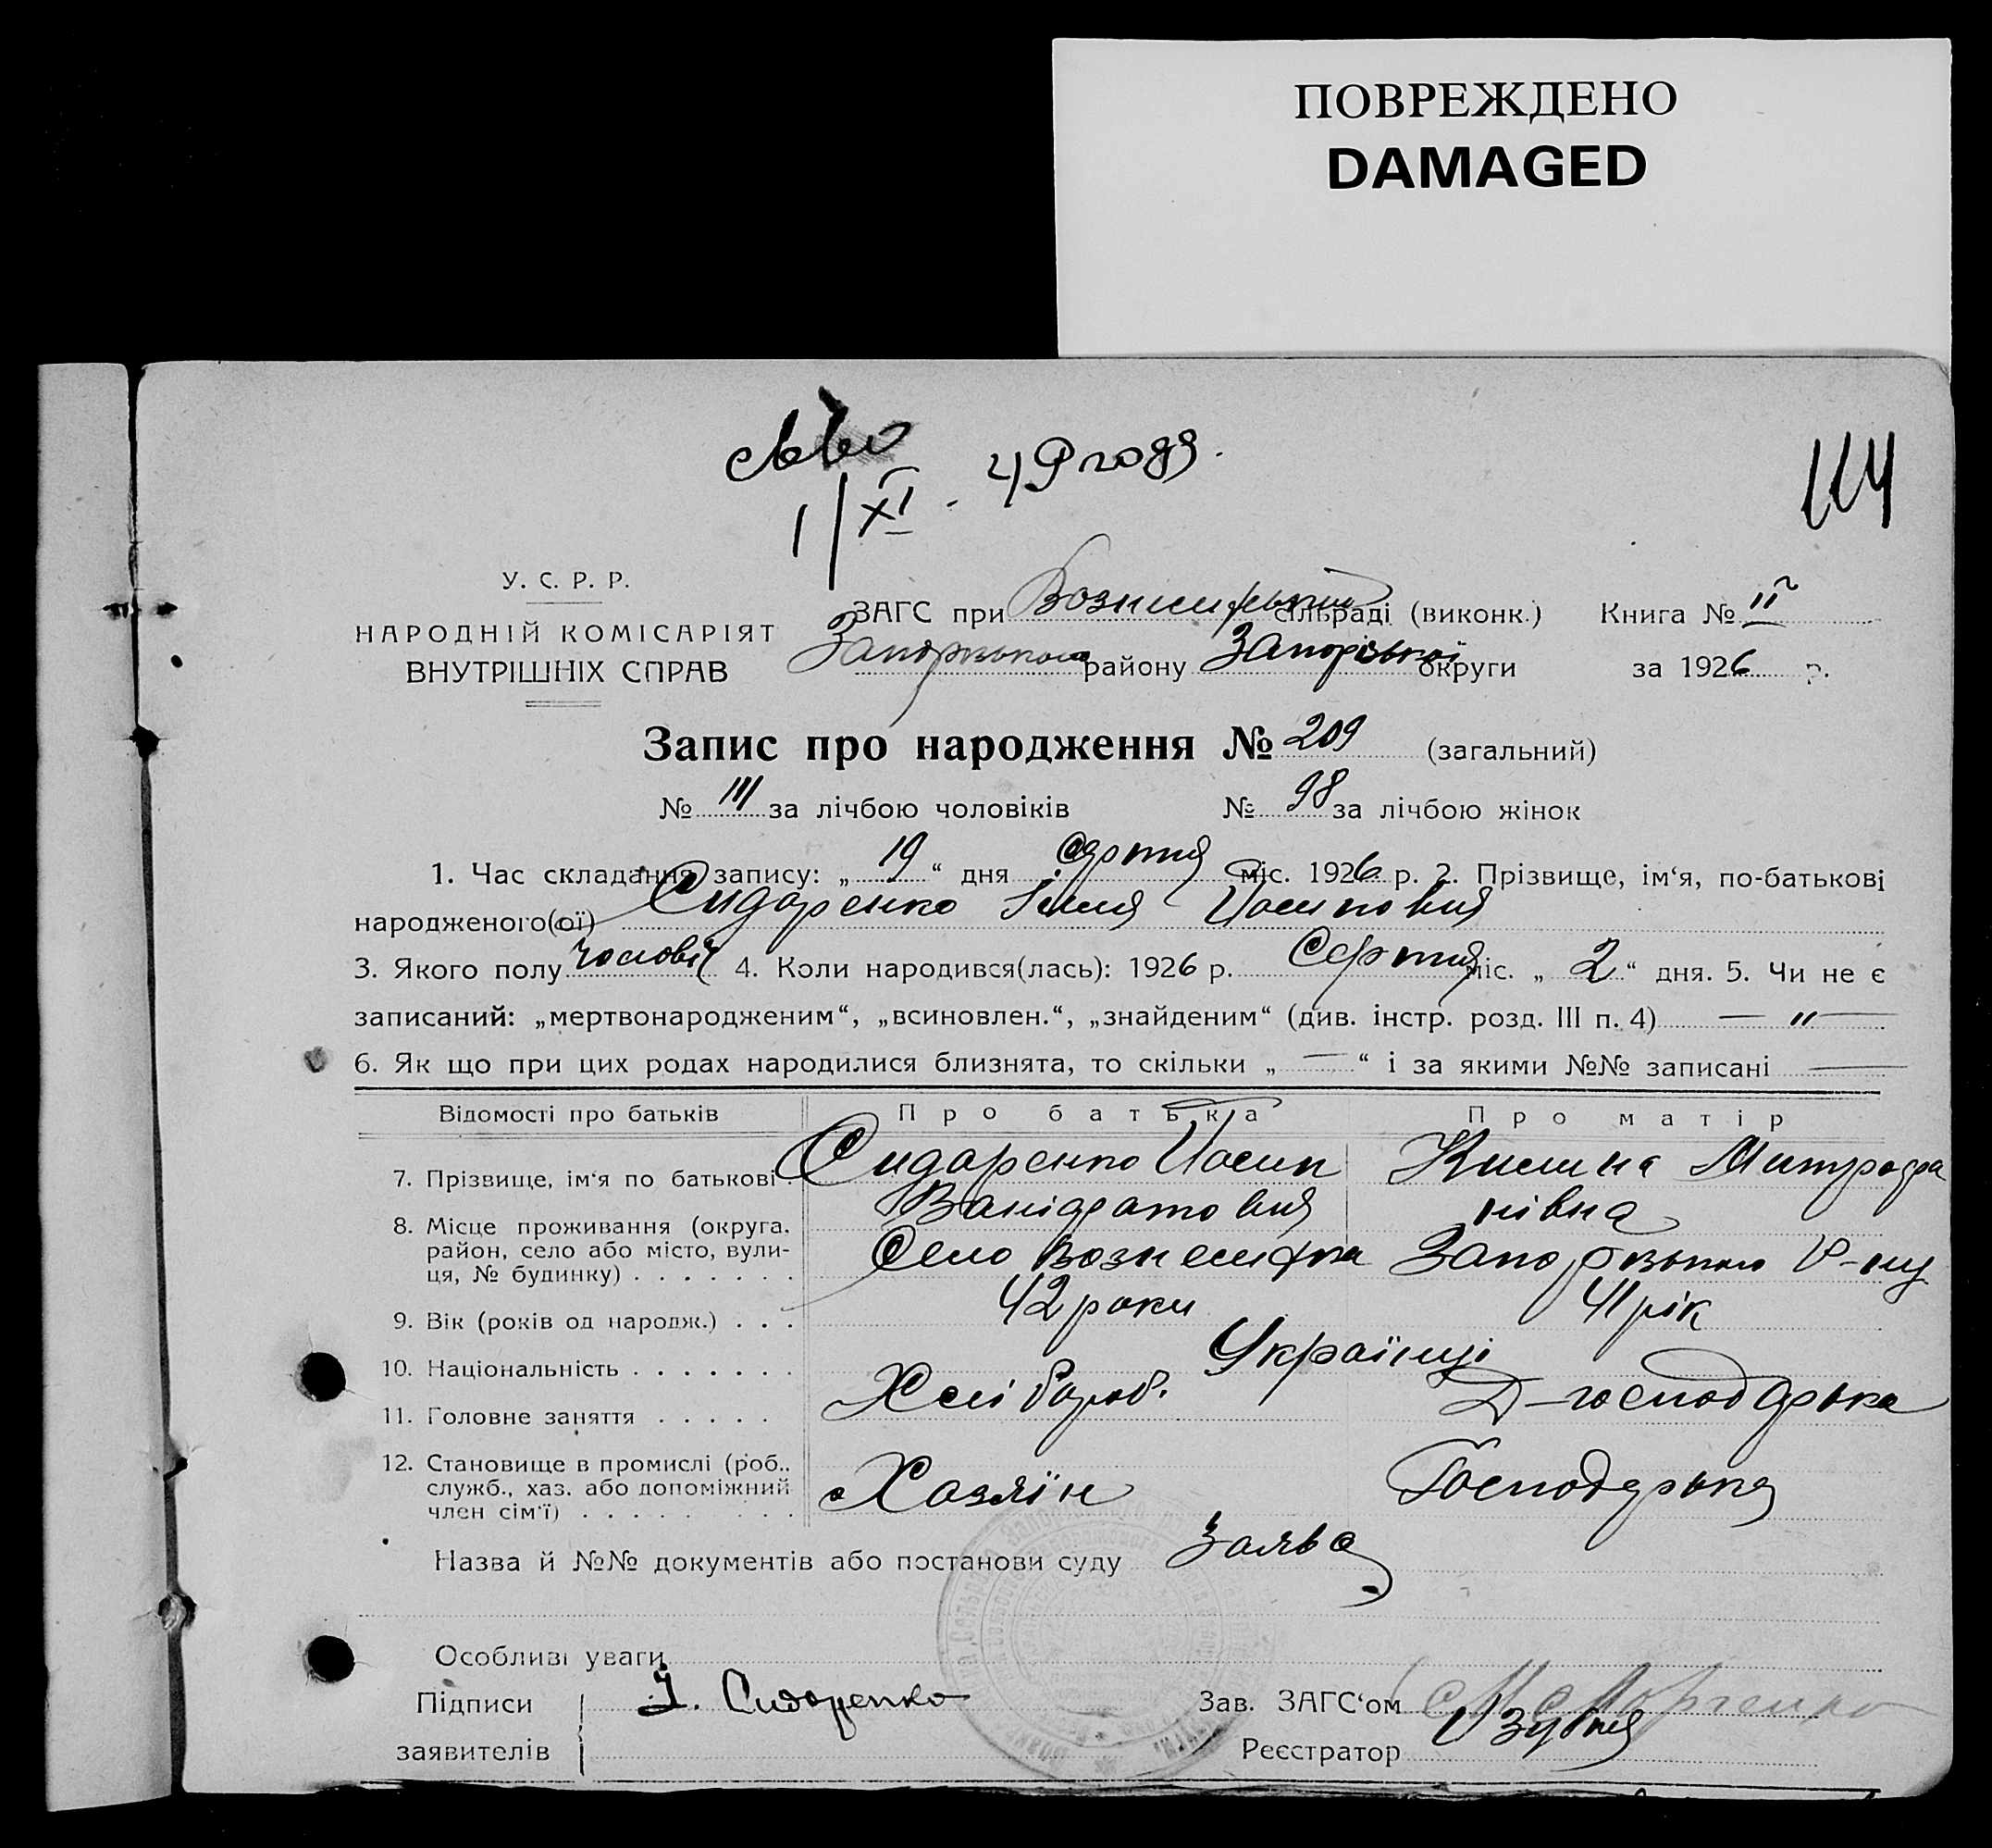 ПОВРЕЖДЕНО
DAMAGED
1/XI - 49 году.
114
У. С. Р. Р.
НАРОДНІЙ КОМІСАРІЯТ
ВНУТРІШНІХ СПРАВ
ЗАГС при сільраді (виконк.) Книга № II
району Запорізької округи за 1926 р.
Запис про народження № 209 (загальний)
№ 111 за лічбою чоловіків № 98 за лічбою жінок
1. Час складання запису: „ 19 “ дня міс. 1926 р. 2. Прізвище, ім‘я, по-батькові
народженого(ої) Сидоренко Ілля
3. Якого полу чоловіч 4. Коли народився(лась): 1926 р. Серпня міс. „ 2 “ дня. 5. Чи не є
записаний: „мертвонародженим“, „всиновлен.“, „знайденим“ (див. інстр. розд. III п. 4) — " —
6. Як що при цих родах народилися близнята, то скільки „ — “ і за якими №№ записані —
Відомості про батьків Про батька Про матір
7. Прізвище, ім‘я по батькові . Сидоренко Йосип
8. Місце проживання (округа, район, село або місто, вулиця, № будинку) . . . . . . . Село Вознесенка Запорізького Р-ну
9. Вік (років од народж.) . . . 42 роки 41 рік
10. Національність . . . . . . . Українці
11. Головне заняття . . . . . Хлібороб. Д-господарька
12. Становище в промислі (роб., служб., хаз. або допоміжний член сім‘ї) . . . . . . . . . Хозяїн Господарька
Назва й №№ документів або постанови суду Заява
Особливі уваги
Підписи І. Сидоренко Зав. ЗАГС‘ом
заявителів Реєстратор